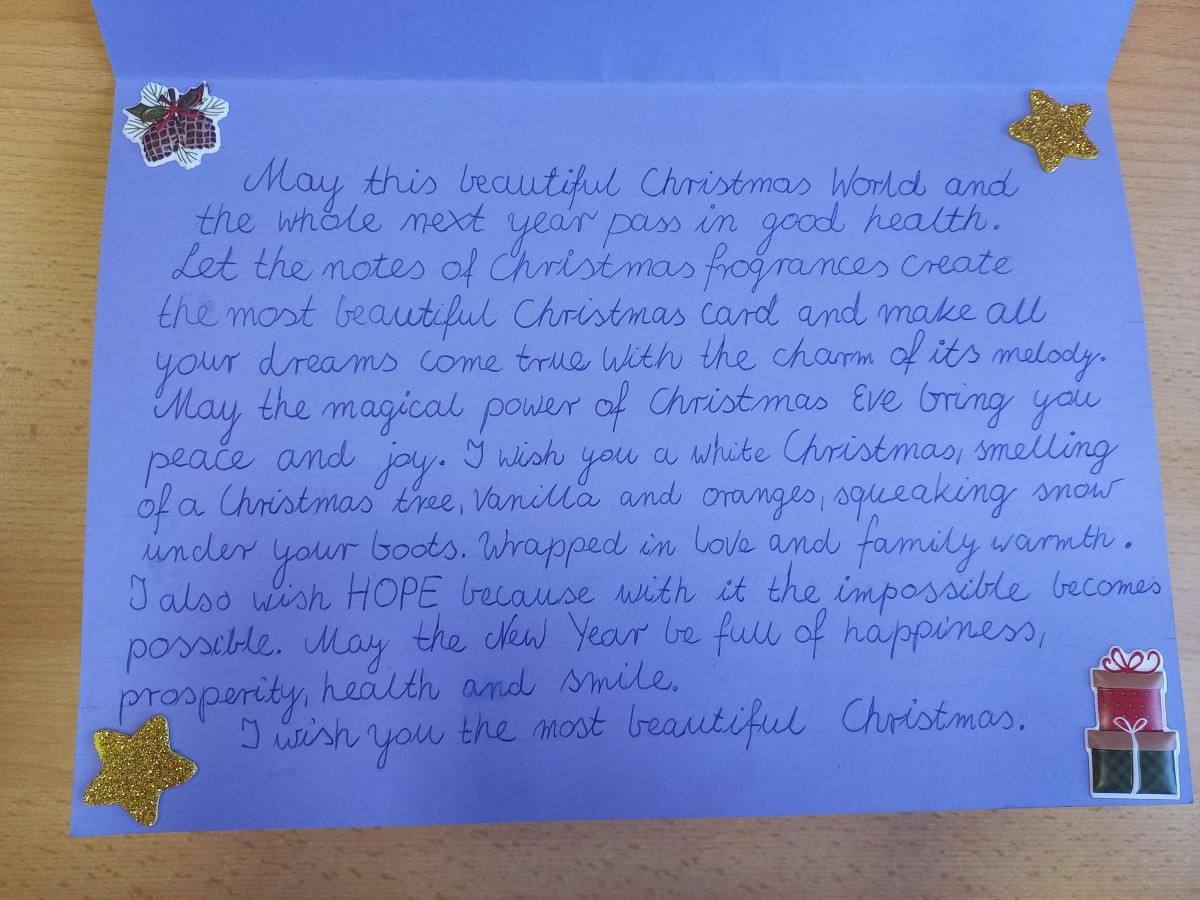 May this beautiful Christmas World and
the whole next year pass in good health.
Let the notes of Christmas frogrances create
the most beautiful Christmas card and make all
your dreams come true With the charm of its melody.
May the magical power of Christmas Eve bring you
peace and joy. I wish you a white Christmas, smelling
of a Christmas tree, Vanilla and oranges, squeaking snow
under your boots. Wrapped in love and family warmth.
I also wish HOPE because with it the impossible becomes
possible. May the New Year be full of happiness,
prosperity, health and smile.
I wish you the most beautiful Christmas.